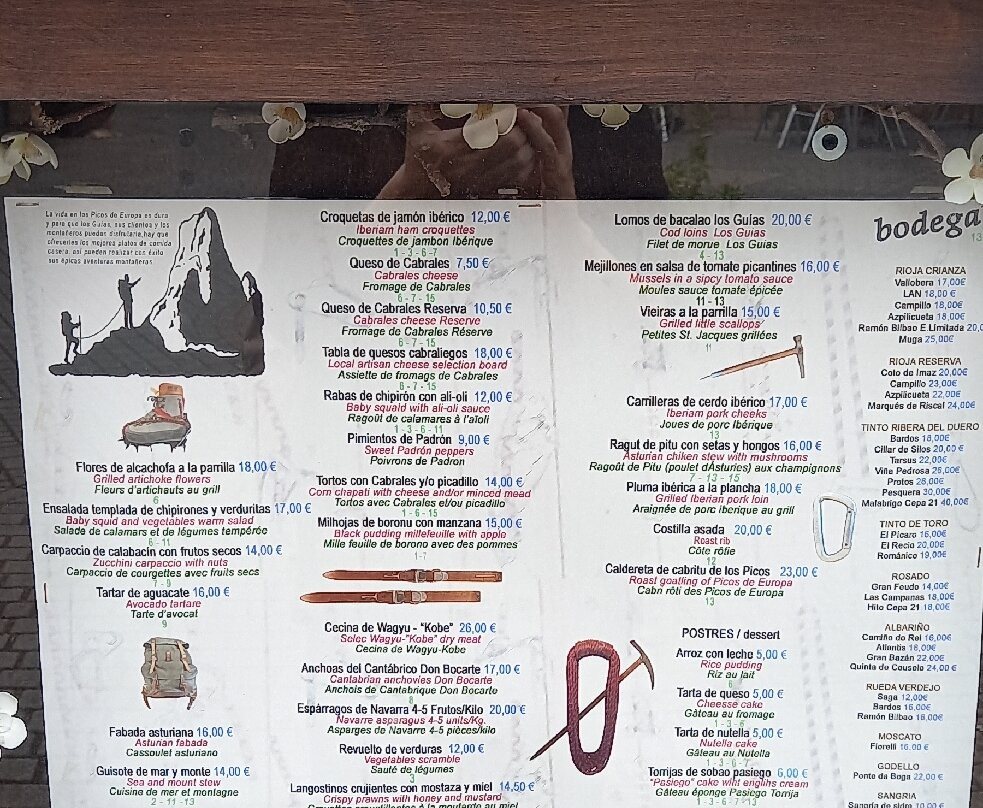 La vida en los Picos de Europa es dura
y para que los Guías, sus clientes y los
montañeros puedan disfrutarla, hay que
ofrecerles los mejores platos de comida
casera, así pueden realizar con éxito
sus épicas aventuras montañeras.
Flores de alcachofa a la parrilla 18,00 €
Grilled artichoke flowers
Fleurs d'artichauts au grill
6
Ensalada templada de chipirones y verduritas 17,00 €
Baby squid and vegetables warm salad
Salade de calamars et de légumes tempérée
6 - 11
Carpaccio de calabacín con frutos secos 14,00 €
Zucchini carpaccio with nuts
Carpaccio de courgettes avec fruits secs
7 - 9
Tartar de aguacate 16,00 €
Avocado tartare
Tarte d'avocat
9
Fabada asturiana 16,00 €
Asturian fabada
Cassoulet asturiano
Guisote de mar y monte 14,00 €
Sea and mount stew
Cuisine de mer et montagne
2 - 11 - 13
Croquetas de jamón ibérico 12,00 €
Iberiam ham croquettes
Croquettes de jambon Ibérique
1 - 3 - 6 - 7
Queso de Cabrales 7,50 €
Cabrales cheese
Fromage de Cabrales
6 - 7 - 15
Queso de Cabrales Reserva 10,50 €
Cabrales cheese Reserve
Fromage de Cabrales Réserve
6 - 7 - 15
Tabla de quesos cabraliegos 18,00 €
Local artisan cheese selection board
Assiette de fromags de Cabrales
6 - 7 - 15
Rabas de chipirón con ali-oli 12,00 €
Baby squald with ali-oli sauce
Ragoût de calamares à l'aïoli
1 - 3 - 6 - 11
Pimientos de Padrón 9,00 €
Sweet Padrón peppers
Poivrons de Padron
Tortos con Cabrales y/o picadillo 14,00 €
Corn chapati with cheese and/or minced mead
Tortos avec Cabrales el/ou picadillo
1 - 6 - 15
Milhojas de boronu con manzana 15,00 €
Black pudding millefeuille with apple
Mille feuille de borono avec des pommes
1 - 7
Cecina de Wagyu - "Kobe" 26,00 €
Selec Wagyu-"Kobe" dry meat
Cecina de Wagyu-Kobe
Anchoas del Cantábrico Don Bocarte 17,00 €
Cantabrian anchovies Don Bocarte
Anchois de Cantabrique Don Bocarte
8
Espárragos de Navarra 4-5 Frutos/Kilo 20,00 €
Navarre asparagus 4-5 units/Kg.
Asparges de Navarre 4-5 pièces/kilo
Revuelto de verduras 12,00 €
Vegetables scramble
Sauté de légumes
3
Langostinos crujientes con mostaza y miel 14,50 €
Crispy prawns with honey and mustard
Lomos de bacalao los Guías 20,00 €
Cod loins Los Guias
Filet de morue Los Guias
4 - 13
Mejillones en salsa de tomate picantines 16,00 €
Mussels in a sipcy tomato sauce
Moules sauce tomate épicée
11 - 13
Vieiras a la parrilla 15,00 €
Grilled little scallops
Petites St. Jacques grillées
11
Carrilleras de cerdo ibérico 17,00 €
Iberiam pork cheeks
Joues de porc Ibérique
13
Ragut de pitu con setas y hongos 16,00 €
Asturian chiken stew with mushrooms
Ragoût de Pitu (poulet dAsturies) aux champignons
7 - 13 - 15
Pluma ibérica a la plancha 18,00 €
Grilled Iberian pork loin
Araignée de porc iberique au grill
Costilla asada 20,00 €
Roast rib
Côte rôtie
12
Caldereta de cabritu de los Picos 23,00 €
Roast goatling of Picos de Europa
Cabri rôti des Picos de Europa
13
POSTRES / dessert
Arroz con leche 5,00 €
Rice pudding
Riz au lait
6
Tarta de queso 5,00 €
Cheesse cake
Gâteau au fromage
1 - 3 - 6
Tarta de nutella 5,00 €
Nutella cake
Gâteau au Nutella
1 - 3 - 6 - 7
Torrijas de sobao pasiego 6,00 €
"Pasiego" cake whit englihs cream
Gâteau éponge Pasiego Torrija
1 - 3 - 6 - 7 - 13
bodega
13
RIOJA CRIANZA
Vallobera 17,00€
LAN 18,00 €
Campillo 18,00€
Azpilicueta 18,00€
Ramón Bilbao E.Limitada 20,0
Muga 25,00€
RIOJA RESERVA
Coto de Imaz 20,00€
Campillo 23,00€
Azpilicueta 22,00€
Marqués de Riscal 24,00€
TINTO RIBERA DEL DUERO
Bardos 18,00€
Cillar de Silos 20,00 €
Tarsus 22,00€
Viña Pedrosa 25,00€
Protos 26,00€
Pesquera 30,00€
Malabrigo Cepa 21 40,00€
TINTO DE TORO
El Pícaro 16,00€
El Recio 20,00€
Románico 19,00€
ROSADO
Gran Feudo 14,00€
Las Campanas 18,00€
Hito Cepa 21 18,00€
ALBARIÑO
Camiño do Rei 16,00€
Atlantis 18,00€
Gran Bazán 22,00€
Quinta de Couselo 24,00 €
RUEDA VERDEJO
Saga 12,00€
Bardos 15,00€
Ramón Bilbao 18,00€
MOSCATO
Fiorelli 16,00€
GODELLO
Ponte da Boga 22,00 €
SANGRIA
Sangría de sidra 10,00 €